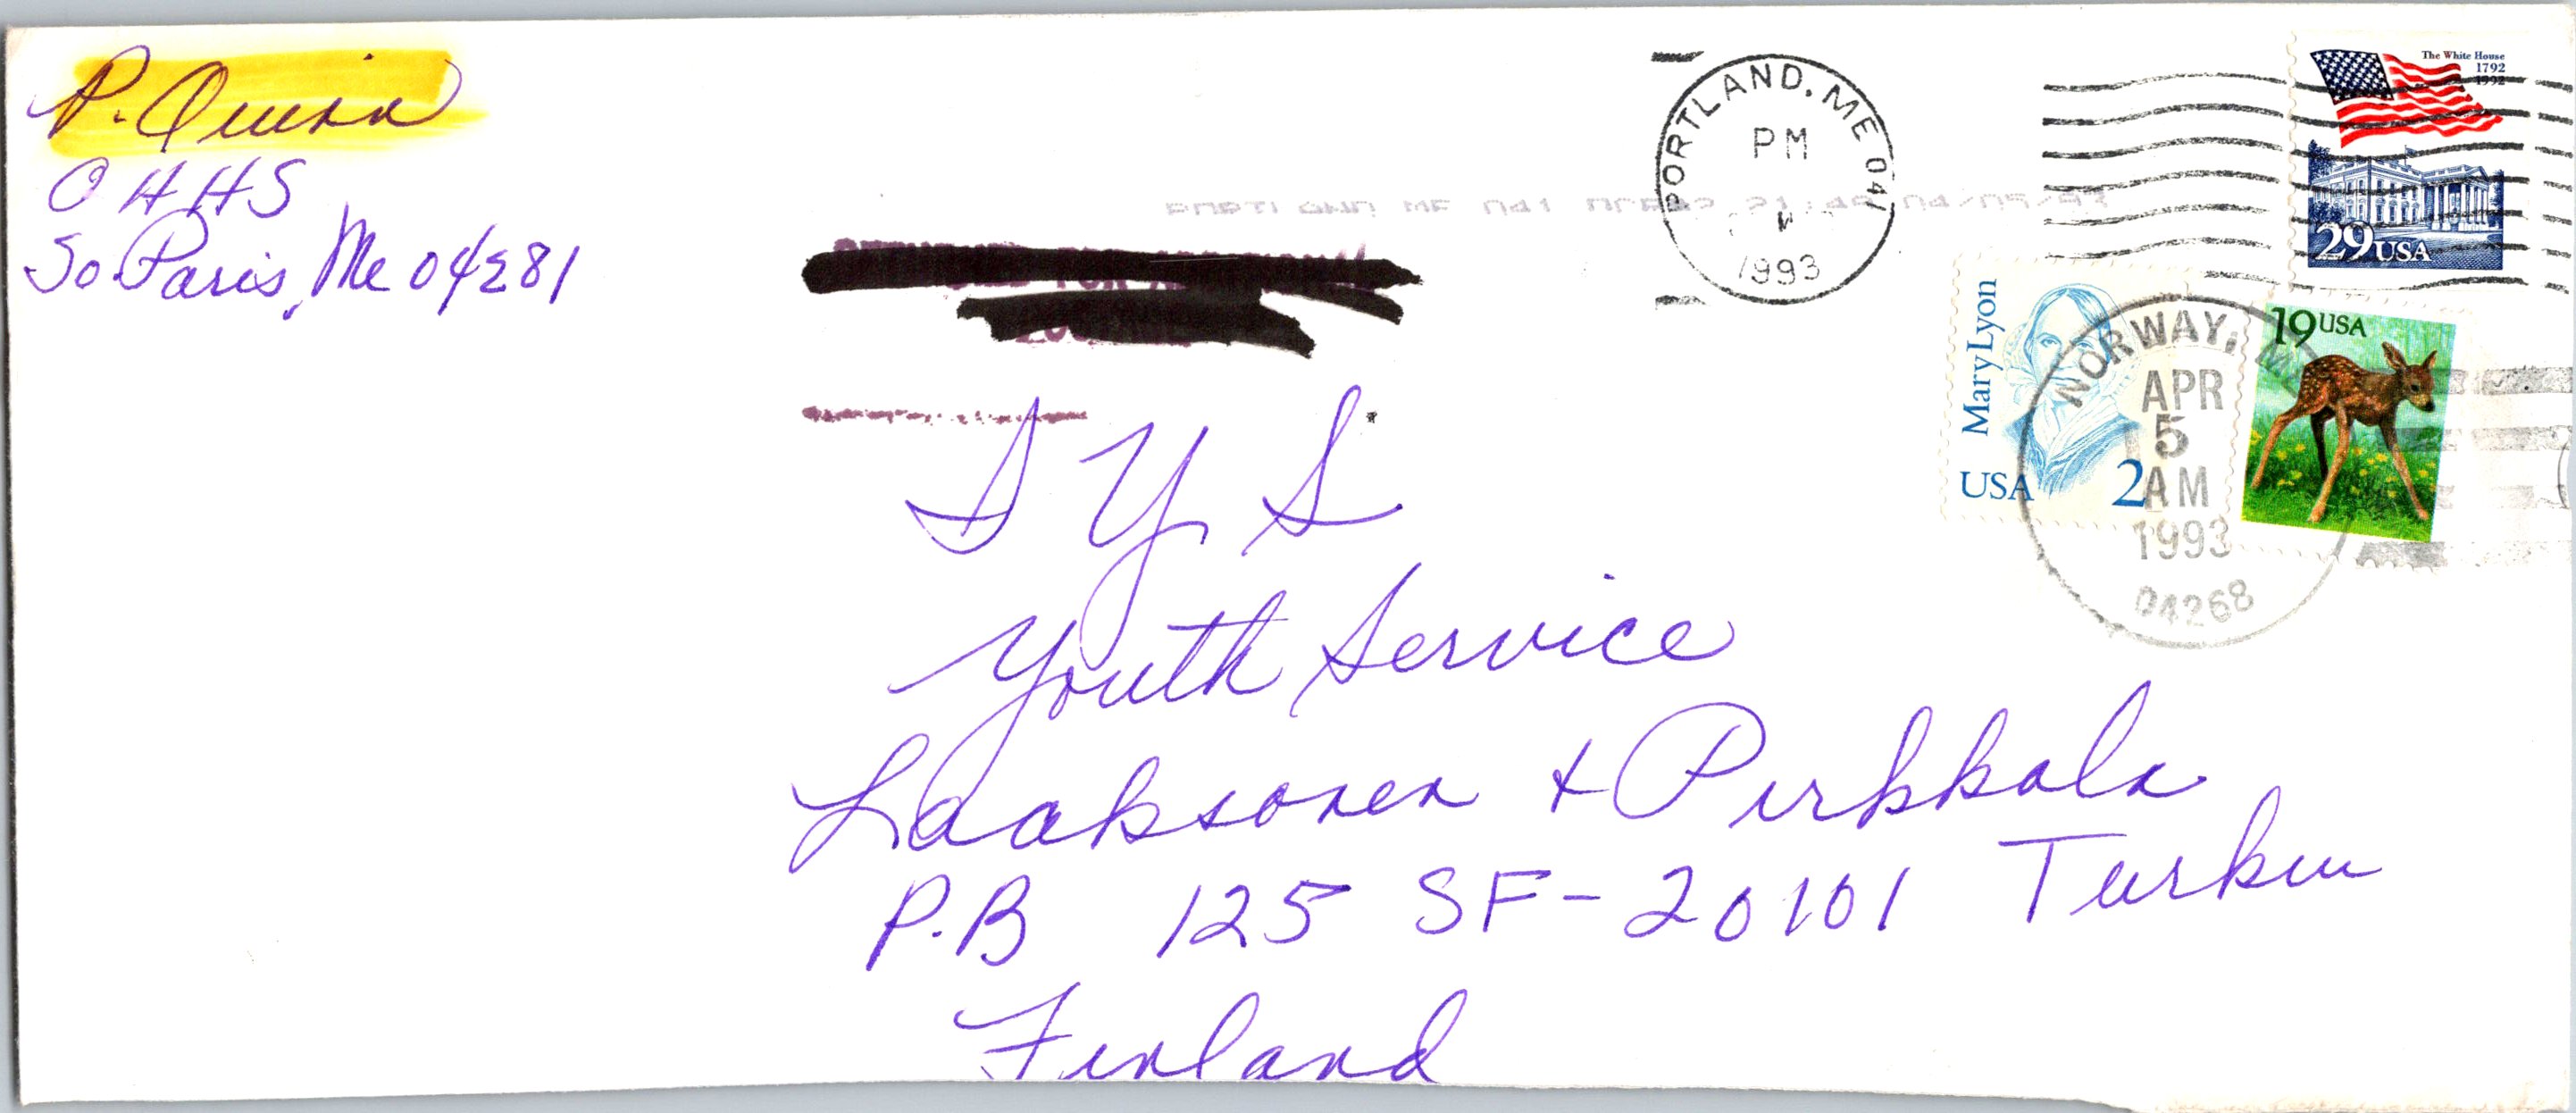 P. Quinn
OHHS
So. Paris, Me 04281
PORTLAND, ME 041
PM
1993
The White House
1792
1992
29 USA
Mary Lyon
USA 2
19 USA
NORWAY, ME
APR
5
AM
1993
04268
S Y S
Youth Service
Laaksonen + Pirkkala
P.B 125 SF-20101 Turku
Finland